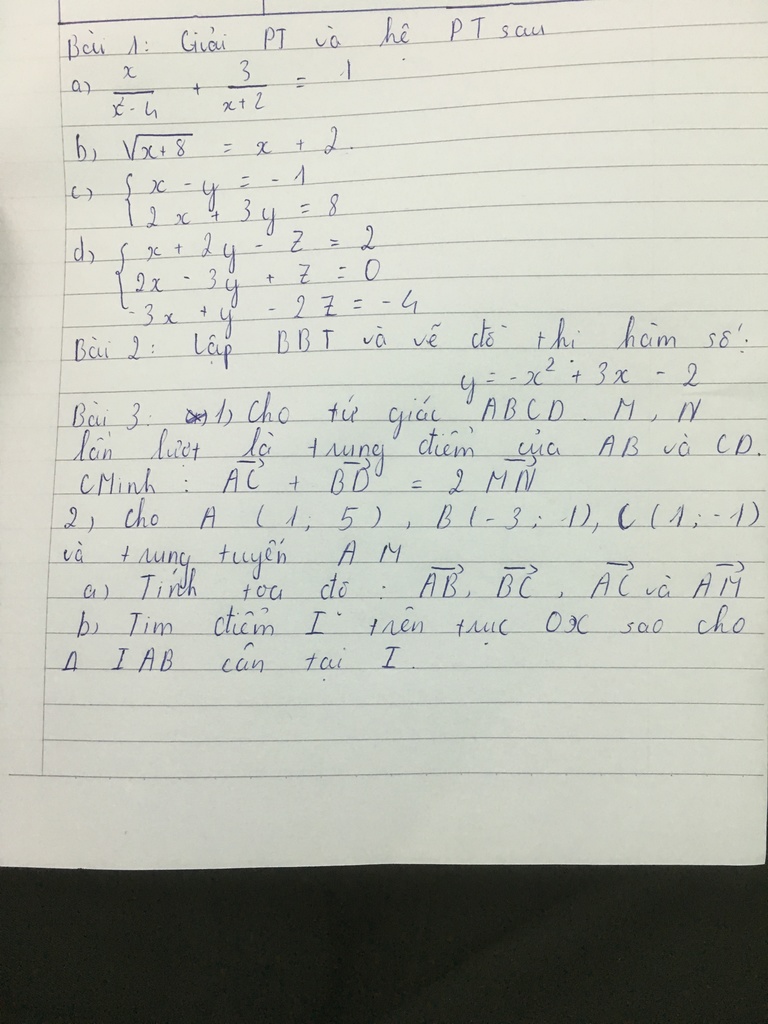 Bài 1: Giải PT và hệ PT sau
a) x/(x²-4) + 3/(x+2) = 1
b) √(x+8) = x + 2.
c) { x - y = -1
2x + 3y = 8
d) { x + 2y - z = 2
2x - 3y + z = 0
-3x + y - 2z = -4
Bài 2: Lập BBT và vẽ đồ thị hàm số:
y = -x² + 3x - 2
Bài 3: 1) Cho tứ giác ABCD. M, N
lần lượt là trung điểm của AB và CD.
CMinh: AC→ + BD→ = 2 MN→
2, Cho A (1; 5), B(-3; 1), C(1; -1)
và trung tuyến AM
a) Tính tọa độ: AB→, BC→, AC→ và AM→
b) Tìm điểm I trên trục OX sao cho
Δ IAB cân tại I.